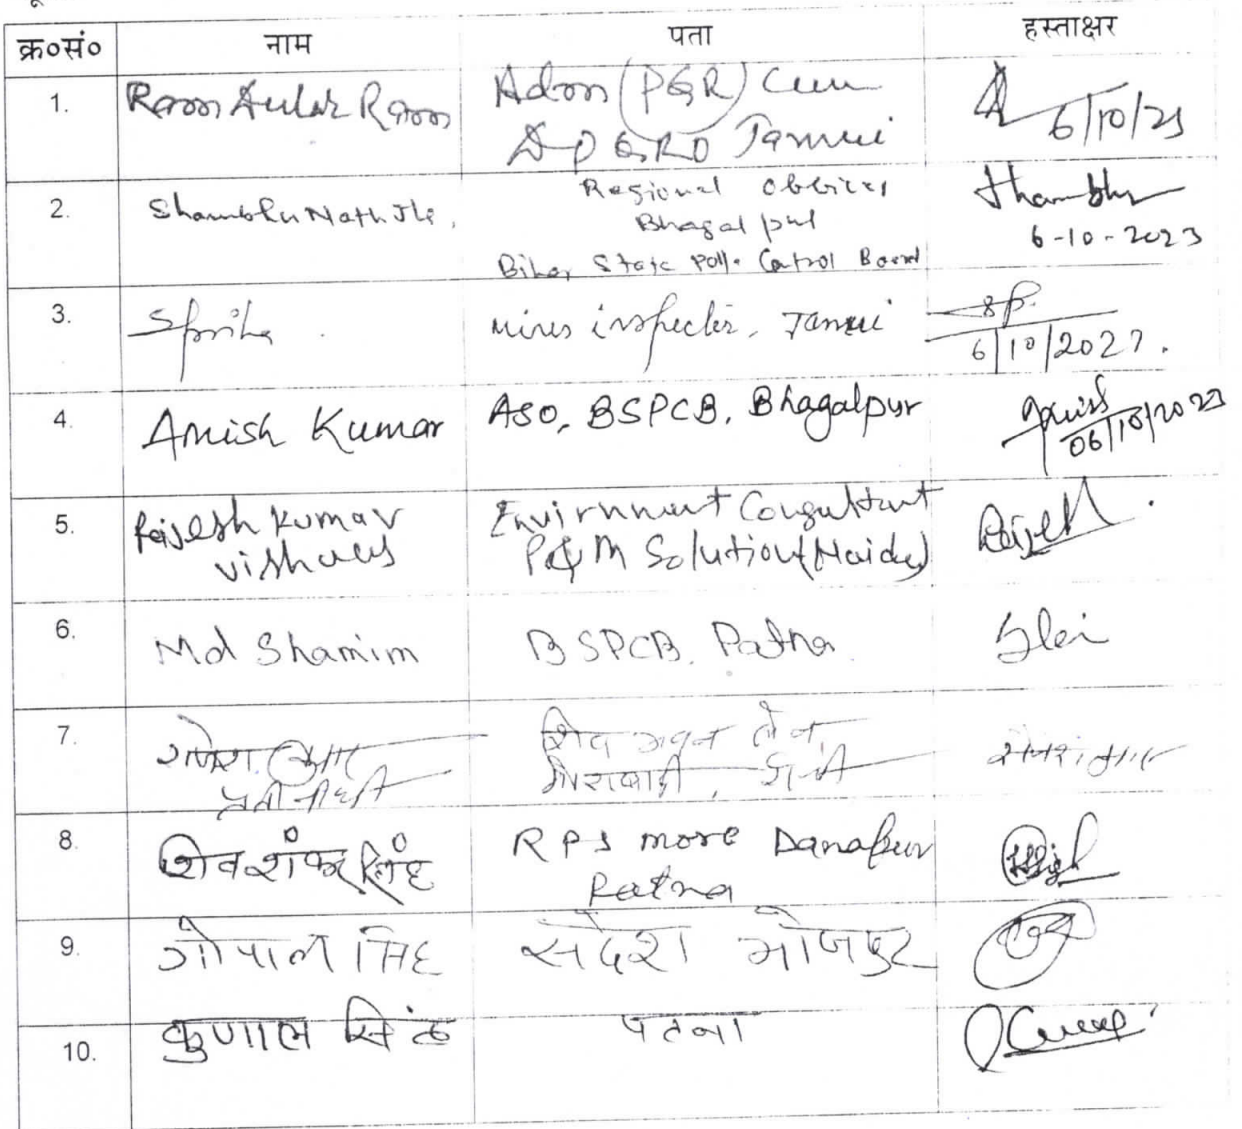 क्र०सं० नाम पता हस्ताक्षर
1. Ram Autar Ram Adm (PGR) Cum
DPGRO Jamui 6/10/23
2. Shambhu Nath Jha, Regional Officer
Bhagalpur Shambhu
Bihar State Poll. Control Board 6-10-2023
3. Mines inspector, Jamui SP.
6/10/2023.
4. Amish Kumar ASO, BSPCB, Bhagalpur Amish
06/10/2023
5. Rajesh Kumar Envirnment Consultant Rajesh
P&M Solution (Noida)
6. Md Shamim BSPCB, Patna
7.
8. शिव शंकर सिंह RPS more Danapur
Patna
9. गोपाल सिंह संदेश भोजपुर
10. कुणाल सिंह पटना